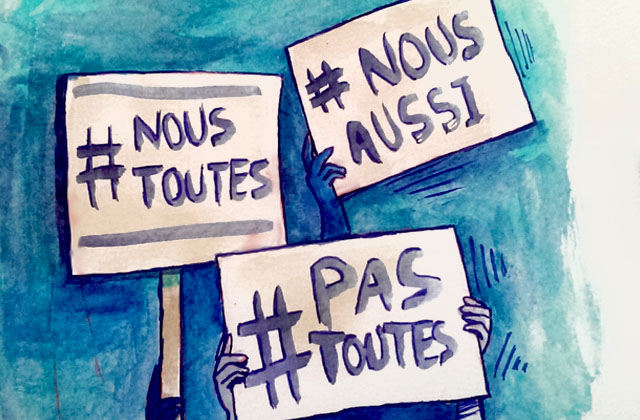 # NOUS
TOUTES
# NOUS
AUSSI
# PAS
TOUTES